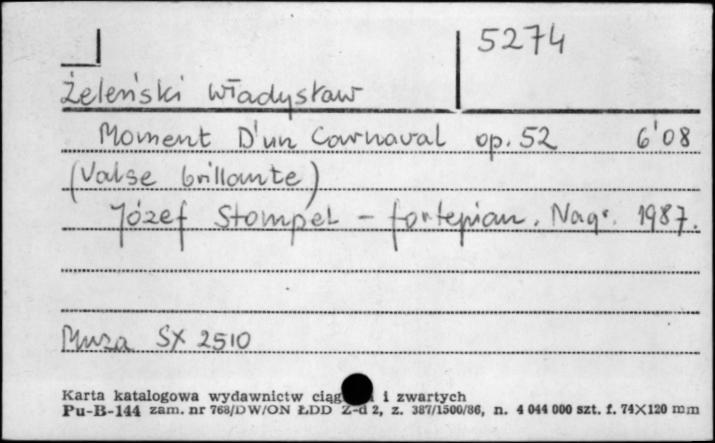 5274
Żeleński Władysław
Moment D'un Carnaval op. 52 6'08
(Valse brillante)
Józef Stompel - fortepian. Nagr. 1987.
Muza SX 2510
Karta katalogowa wydawnictw ciąg i zwartych
Pu-B-144 zam. nr 768/DW/ON ŁDD Z-d 2, z. 387/1500/86, n. 4 044 000 szt. f. 74X120 mm